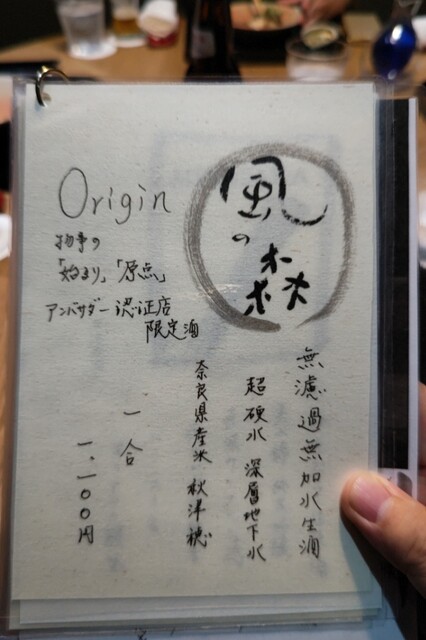 風の森
Origin
物事の
「始まり」「原点」
アンバサダー認証店
限定酒
無濾過無加水生酒
超硬水 深層地下水
奈良県産米 秋津穂
一合
一、一〇〇円